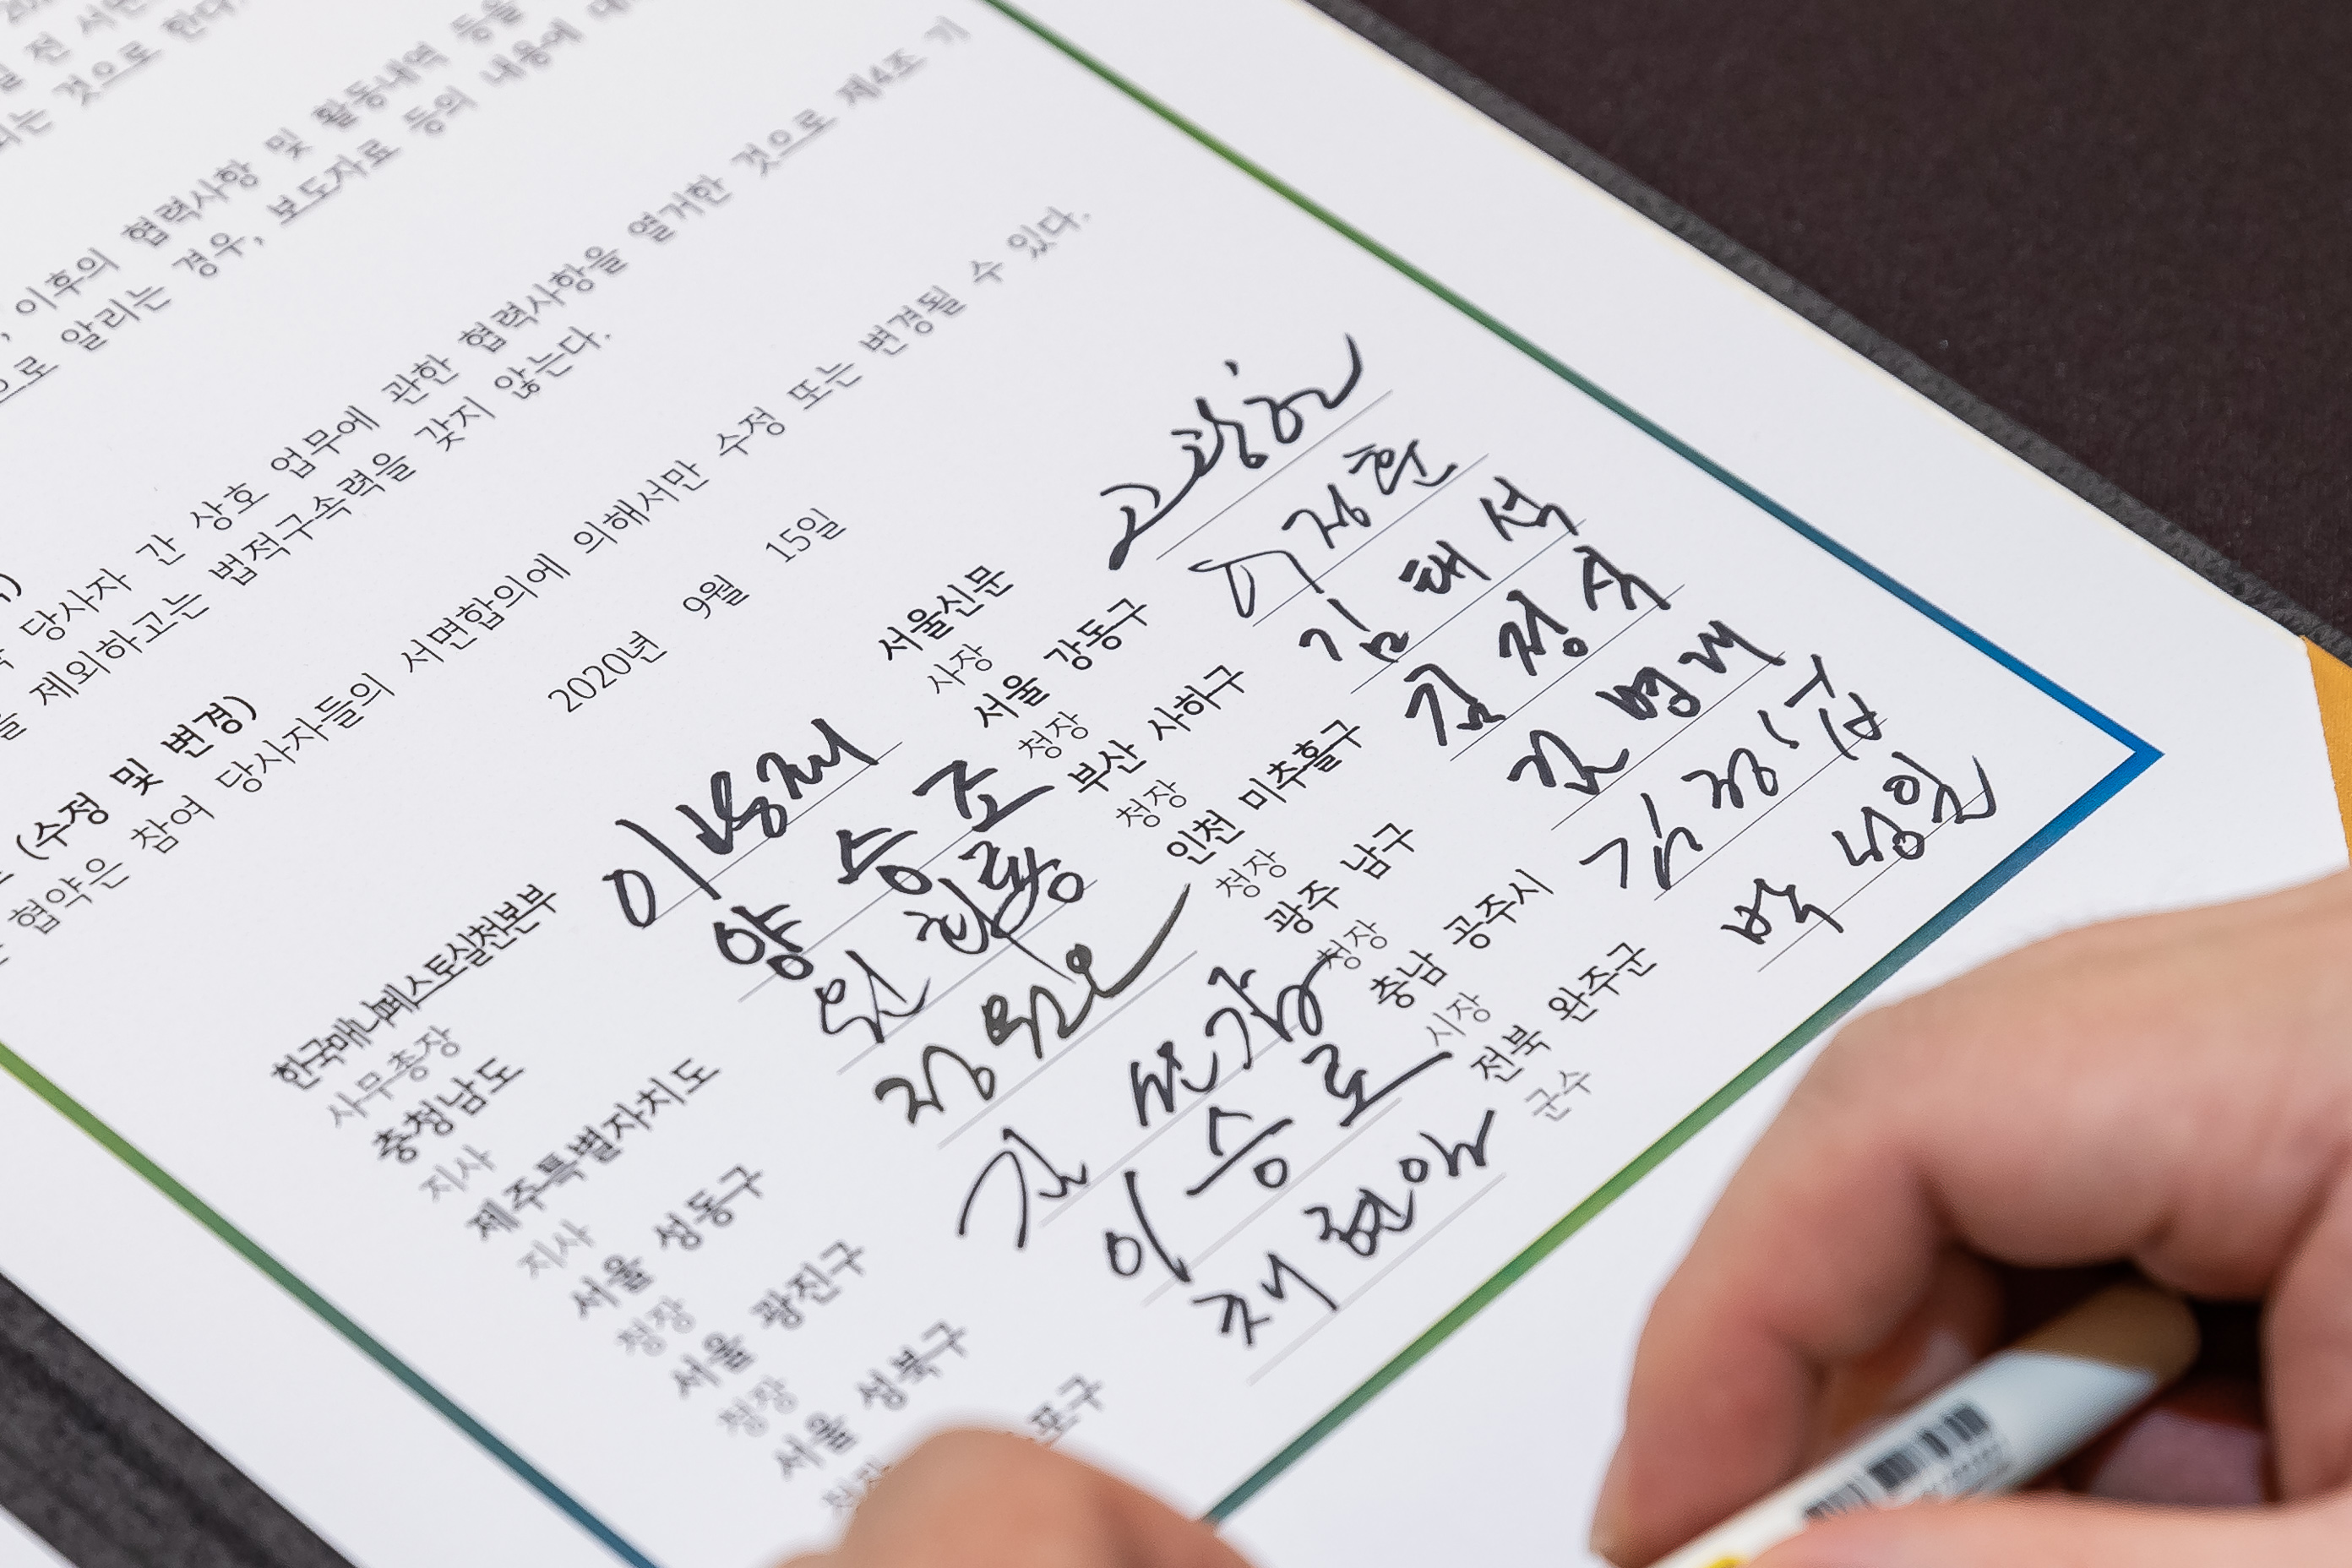 전
되는 것으로 한다.
이후의 협력사항 및 활동내역 등을
으로 알리는 경우, 보도자료 등의 내용에
당사자 간 상호 업무에 관한 협력사항을 열거한 것으로 제4조 기
제외하고는 법적구속력을 갖지 않는다.
(수정 및 변경)
협약은 참여 당사자들의 서면합의에 의해서만 수정 또는 변경될 수 있다.
2020년 9월 15일
한국매니페스토실천본부
사무총장 이광재
충청남도
지사 양승조
제주특별자치도
지사 원희룡
서울 성동구
청장 정원오
서울 광진구
청장 김선갑
서울 성북구
청장 이승로
포구
채현일
서울신문
사장 고광헌
서울 강동구
청장 이정훈
부산 사하구
청장 김태석
인천 미추홀구
청장 김정식
광주 남구
청장 김병내
충남 공주시
시장 김정섭
전북 완주군
군수 박성일